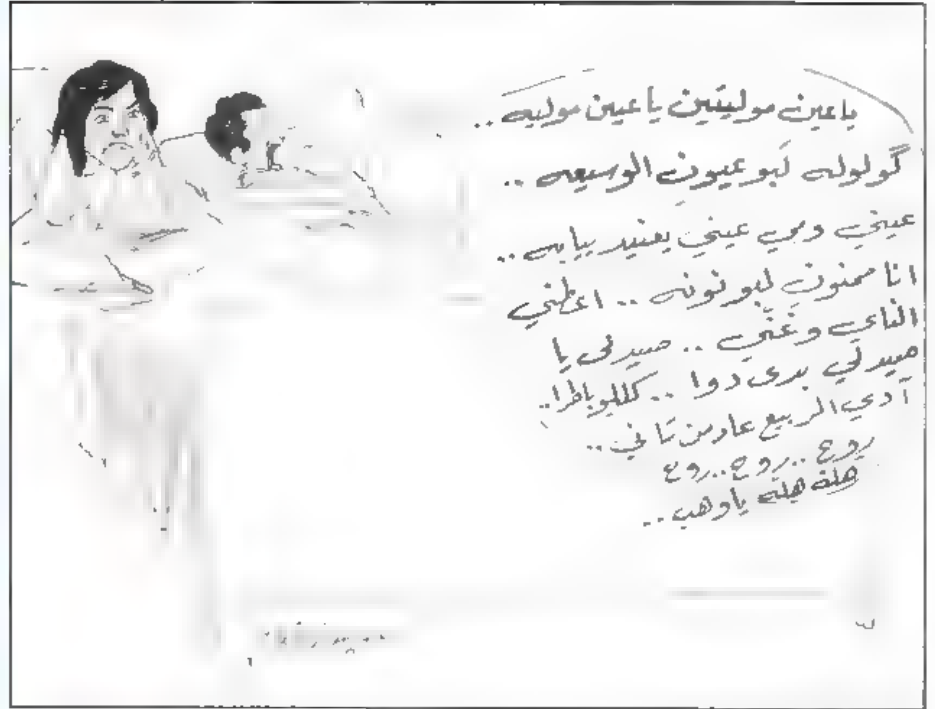 ياعين موليتين ياعين موليه ..
گولوله لَبو عيون الوسيعه ..
عيني ومي عيني يعنيد بيابه ..
انا ممنون لبو نونه .. اعطني
الناي وغنّي .. صيدلي يا
صيدلي بدي دوا .. كللوباطرا..
آدي الربيع عاد من تاني ..
روح .. روح.. روح
هلة هلة ياوهب ..